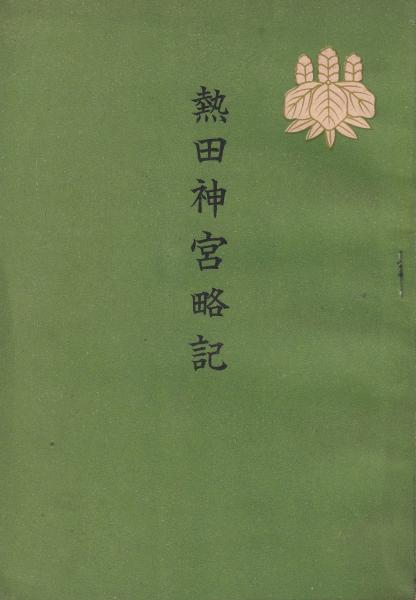 熱田神宮略記